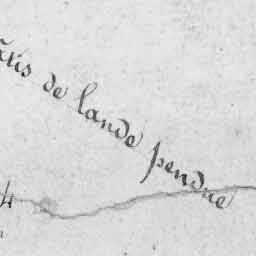 de lande pendue
4